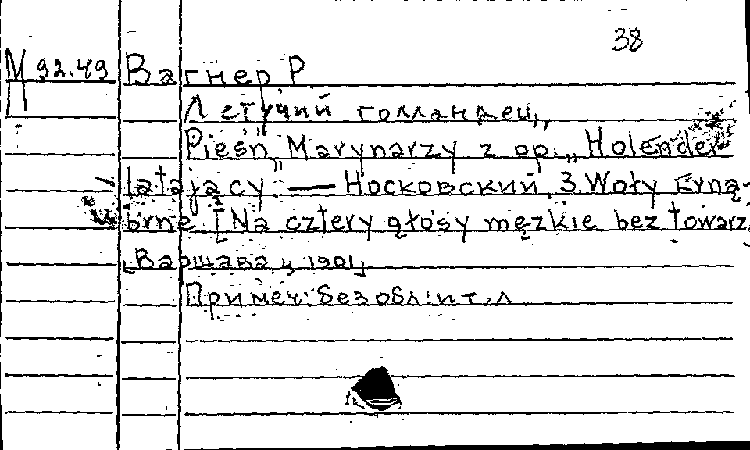 38
М 92.49 Вагнер Р
Летучий голландец,
Pieśń „Marynarzy z op. „Holender
latający" — Носковский, З. Woły
birne. [Na cztery głosy męzkie bez towarz.
[Варшава, 1901]
Примеч: без обл. и т. л